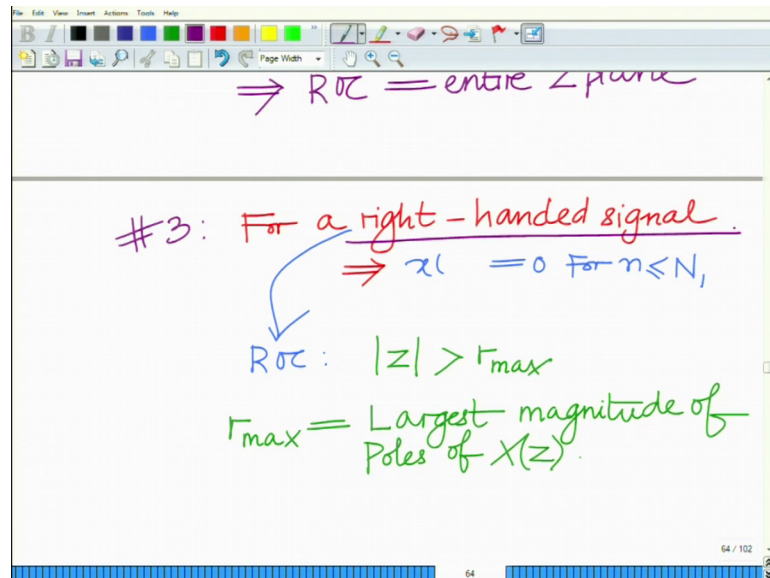 File Edit View Insert Actions Tools Help
B I
Page Width
⇒ ROC = entire Z plane
#3: For a right-handed signal.
⇒ x( = 0 For n ≤ N₁
ROC: |z| > rmax
rmax = Largest magnitude of
Poles of X(z).
64 / 102
64